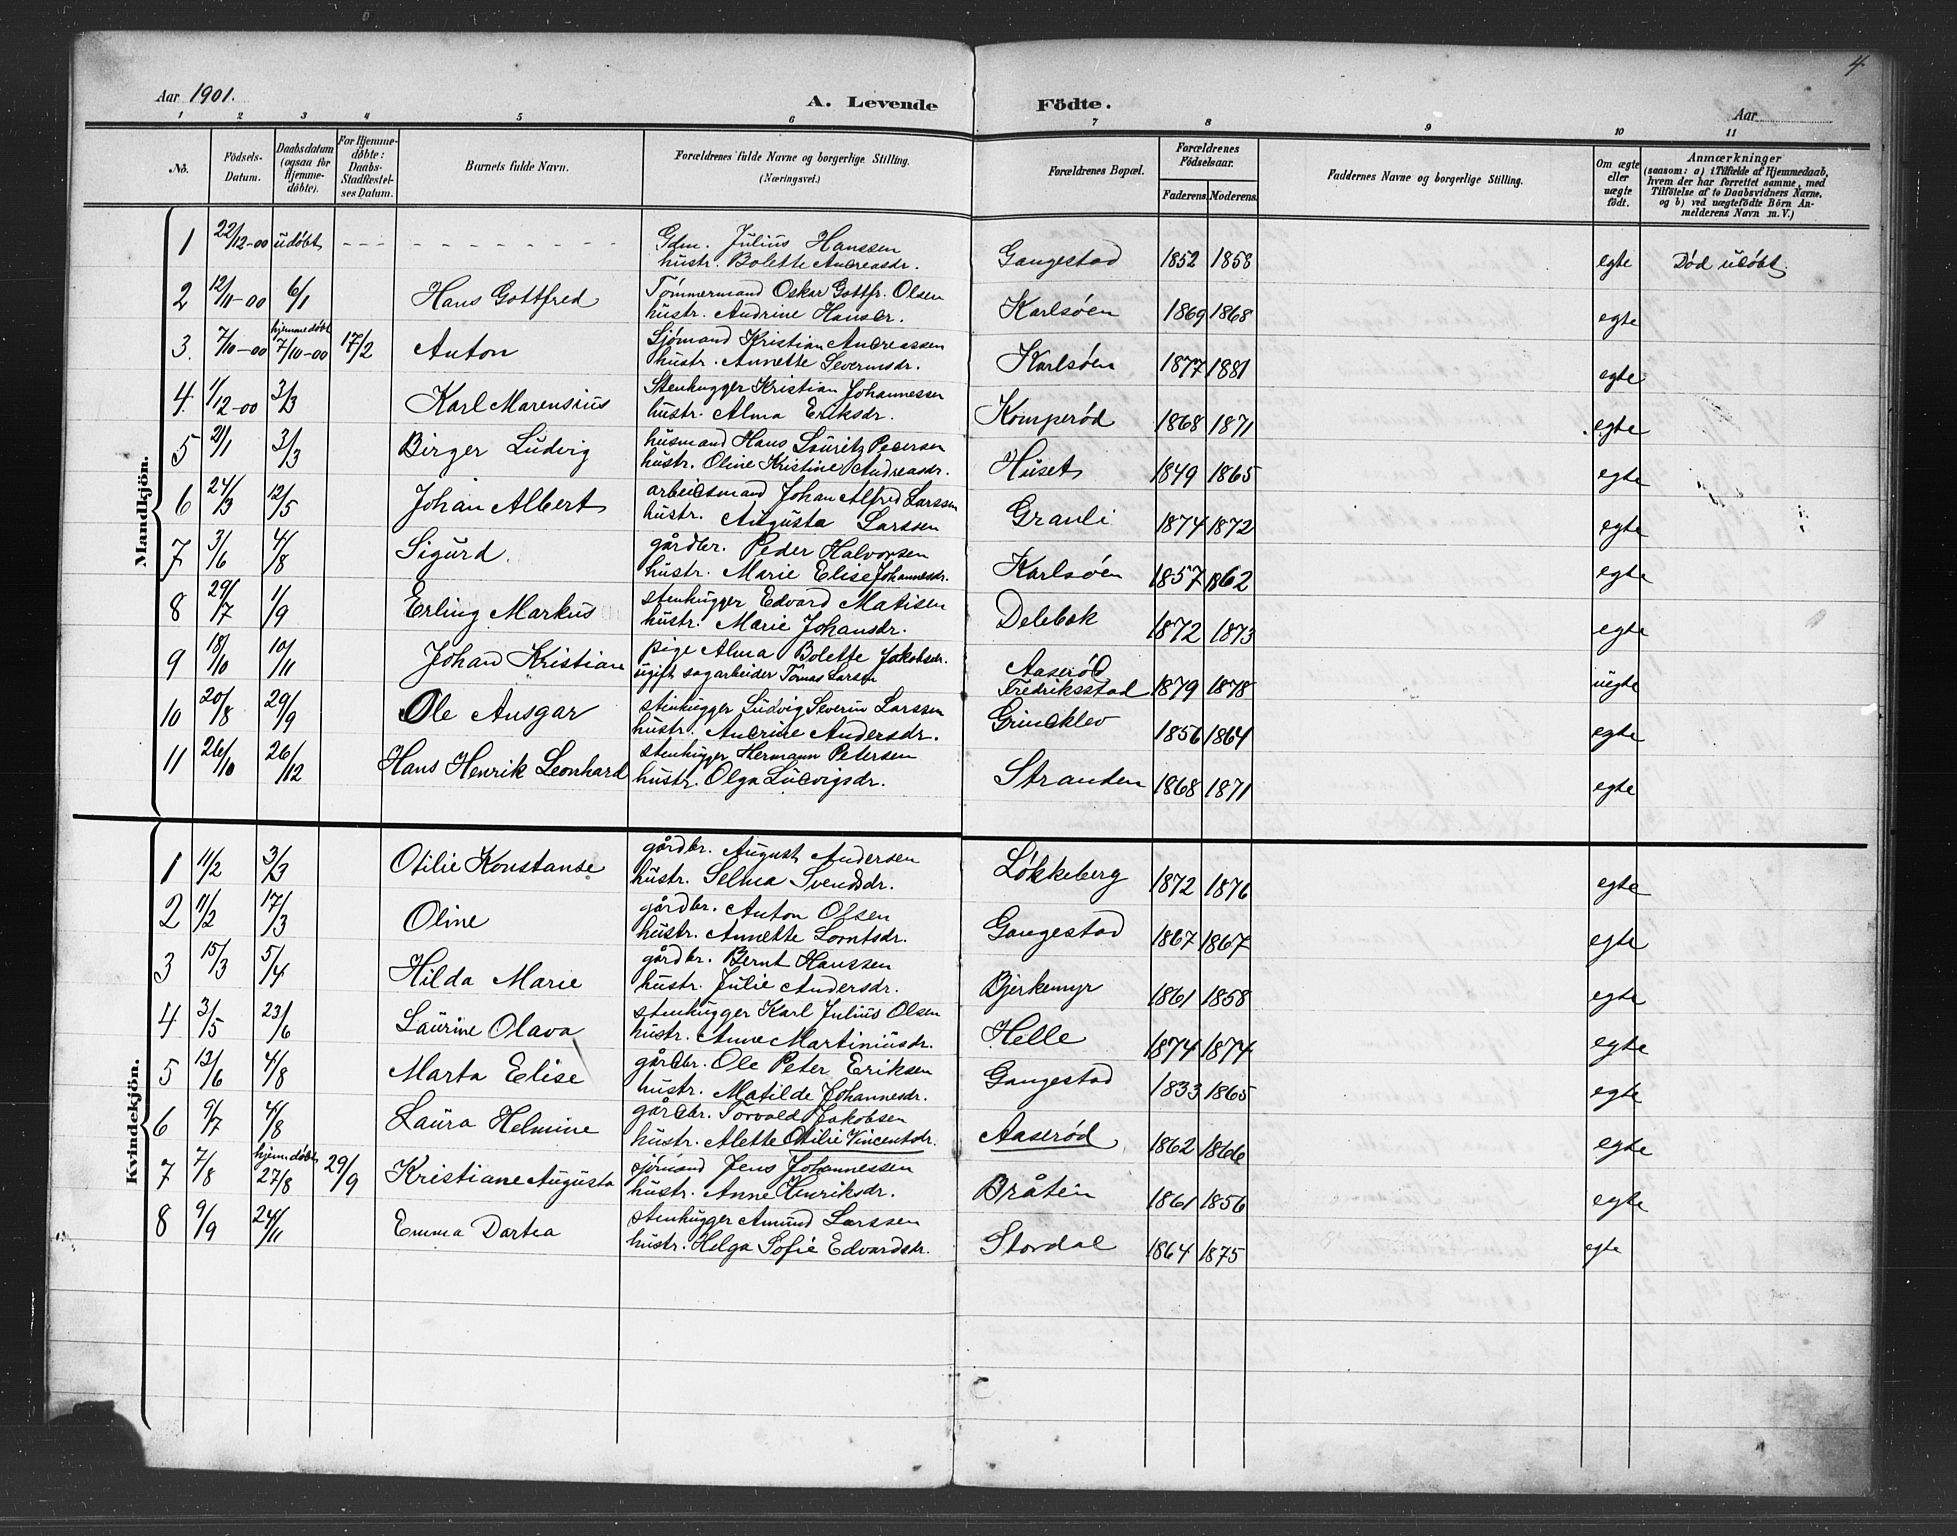 4
Aar 1901.
A. Levende Födte.
Aar
1 2 3 4 5 6 7 8 9 10 11
No.
Födsels-Datum.
Daabsdatum (ogsaa for Hjemme-døbte).
For Hjemme-døbte: Daabs-Stadfæstel-ses Datum.
Barnets fulde Navn.
Forældrenes fulde Navne og borgerlige Stilling.
(Næringsvei.)
Forældrenes Bopæl.
Forældrenes Födselsaar.
Faderens. Moderens.
Faddernes Navne og borgerlige Stilling.
Om ægte eller uægte født.
Anmærkninger
(saasom: a) i Tilfælde af Hjemmedaab,
hvem der har forrettet samme, med
Tilføielse af to Daabsvidners Navne,
og b) ved uægtefødte Börn An-
melderens Navn m.V.)
Mandkjön.
1 22/12-00 udøbt - - - - - - - - - - Gdm. Julius Hanssen
hustr. Bolette Andreasdr. Gangestad 1852 1858 egte Død udøbt
2 12/11-00 6/1 Hans Gottfred Tømmermand Oskar Gottfr. Olsen
hustr. Andrine Hansdr. Karlsøen 1869 1868 egte
3. 7/10-00 hjemmedøbt 7/10-00 17/2 Anton Sjømand Kristian Andreassen
hustr. Annette Severinsdr. Karlsøen 1877 1881 egte
4. 1/12-00 3/3 Karl Marensius Stenhugger Kristian Johannessen
hustr. Alma Eriksdr. Komperød 1868 1871 egte
5 2/1 3/3 Birger Ludvig husmand Hans Lauritz Pedersen
hustr. Oline Kristine Andreasdr. Huset 1849 1865 egte
6 24/3 12/5 Johan Albert arbeidsmand Johan Alfred Larssen
hustr. Augusta Larssen Granli 1874 1872 egte
7 3/6 4/8 Sigurd. gårdbr. Peder Halvorsen
hustr. Marie Elise Johannesdr. Karlsøen 1857 1862 egte
8 29/7 1/9 Erling Markus stenhugger Edvard Matisen
hustr. Marie Johansdr. Delebek 1872 1873 egte
9 18/10 10/11 Johan Kristian pige Alma Bolette Jakobsdr.
ugift sagarbeider Tomas Larsen Aaserød
Fredriksstad 1879 1878 uegte
10 20/8 29/9 Ole Ansgar stenhugger Ludvig Severin Larssen
hustr. Andrine Andersdr. Grindklev 1856 1864 egte
11 26/10 26/12 Hans Henrik Leonhard stenhugger Hermann Petersen
hustr. Olga Ludvigsdr. Stranden 1868 1871 egte
Kvindekjön.
1 11/2 3/3 Otilie Konstanse gårdbr. August Andersen
hustr. Selma Svendsdr. Løkkeberg 1872 1876 egte
2 11/2 17/3 Oline gårdbr. Anton Olsen
hustr. Annette Lorntsdr. Gangestad 1867 1867 egte
3 15/3 5/4 Hilda Marie gårdbr. Bernt Hanssen
hustr. Julie Andersdr. Bjerkemyr 1861 1858 egte
4 3/5 23/6 Laurine Olava stenhugger Karl Julius Olsen
hustr. Anne Martiniusdr. Helle 1874 1874 egte
5 13/6 4/8 Marta Elise gårdbr. Ole Peter Eriksen
hustr. Matilde Johannesdr. Gangestad 1833 1865 egte
6 9/7 4/8 Laura Helmine gårdbr. Torvald Jakobsen
hustr. Alette Otilie Vincentsdr. Aaserød 1862 1866 egte
7 7/8 hjemmedøbt 27/8 29/9 Kristiane Augusta sjömand Jens Johannessen
hustr. Anne Henriksdr. Bråten 1861 1856 egte
8 9/9 24/11 Emma Dortea stenhugger Amund Larssen
hustr. Helga Sofie Edvardsdr. Stordal 1864 1875 egte